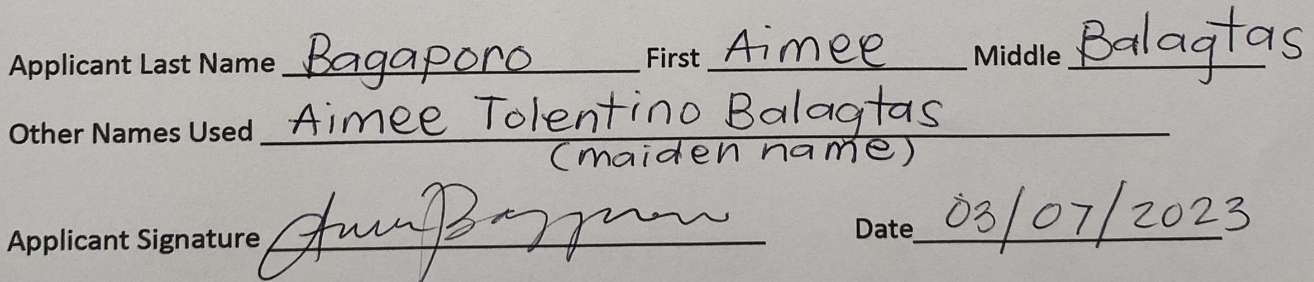 Applicant Last Name Bagaporo First Aimee Middle Balagtas
Other Names Used Aimee Tolentino Balagtas
(maiden name)
Applicant Signature Date 03/07/2023